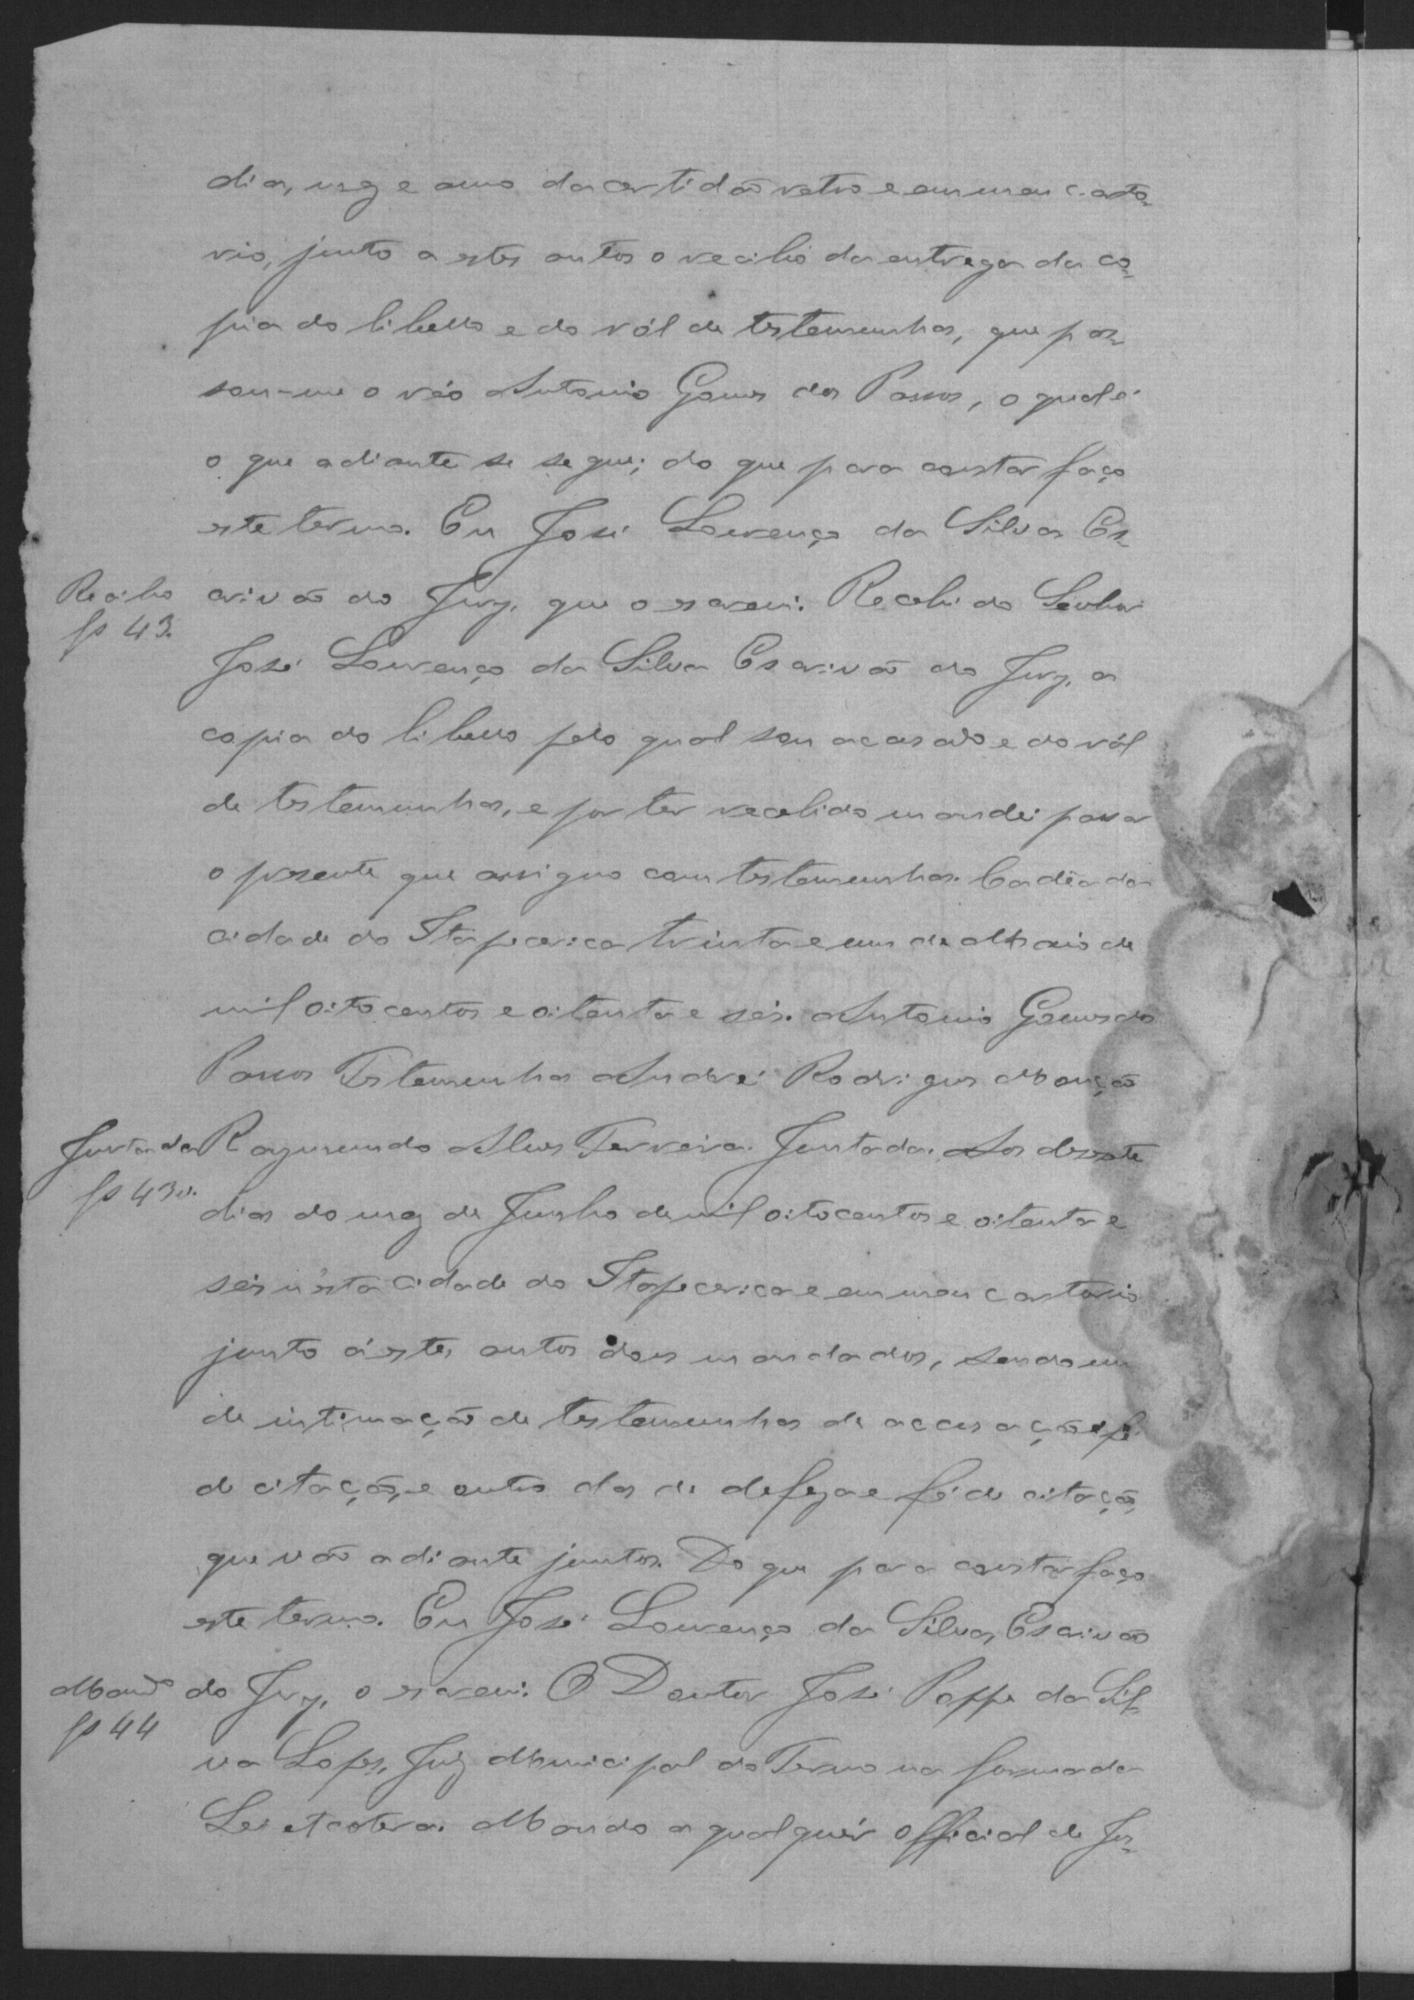 dia, mez e anno da certidão retro e em meu carto-
rio, junto a estes autos o recibo da entrega da co-
pia do libello e do ról de testemunhas, que pas-
sou-me o réo Antonio Gomes dos Passos, o qual é
o que adiante se segue; do que para constar faço
este termo. Eu José Lourenço da Silva Es-
Recibo
fs 43.
crivão do Jury, que o escrevi. Recebi do Senhor
José Lourenço da Silva Escrivão do Jury, a
copia do libello pelo qual sou accusado e do ról
de testemunhas, e por ter recebido mandei passar
o presente que assigno com testemunhas. Cadêa da
cidade do Itapecerica trinta e um de Maio de
mil oitocentos e oitenta e seis. Antonio Gomes do
Passos Testemunhas André Rodrigues Monção
Juntada
fs 43v.
Raymundo Alves Ferreira. Juntada. Aos desesete
dias do mez de Junho de mil oitocentos e oitenta e
seis n'esta cidade do Itapecerica e em meu cartorio
junto á estes autos dous mandados, sendo um
de intimação de testemunhas de accusação e fé
de citação, e outro das de defeza e fé de citação,
que vão adiante juntos. Do que para constar faço
este termo. Eu José Lourenço da Silva, Escrivão
Mando
fs 44
do Jury, o escrevi. O Doutor José Poppe da Sil-
va Lopes, Juiz Municipal do Termo na forma da
Lei etcetera. Mando a qualquér official de Jus-